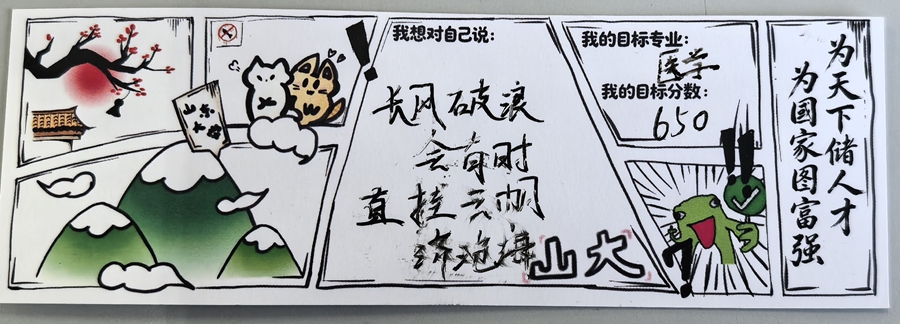 山东
大学
我想对自己说：
长风破浪
会有时
直挂云帆
济沧海
山大
我的目标专业：
医学
我的目标分数：
650
为天下储人才
为国家图富强